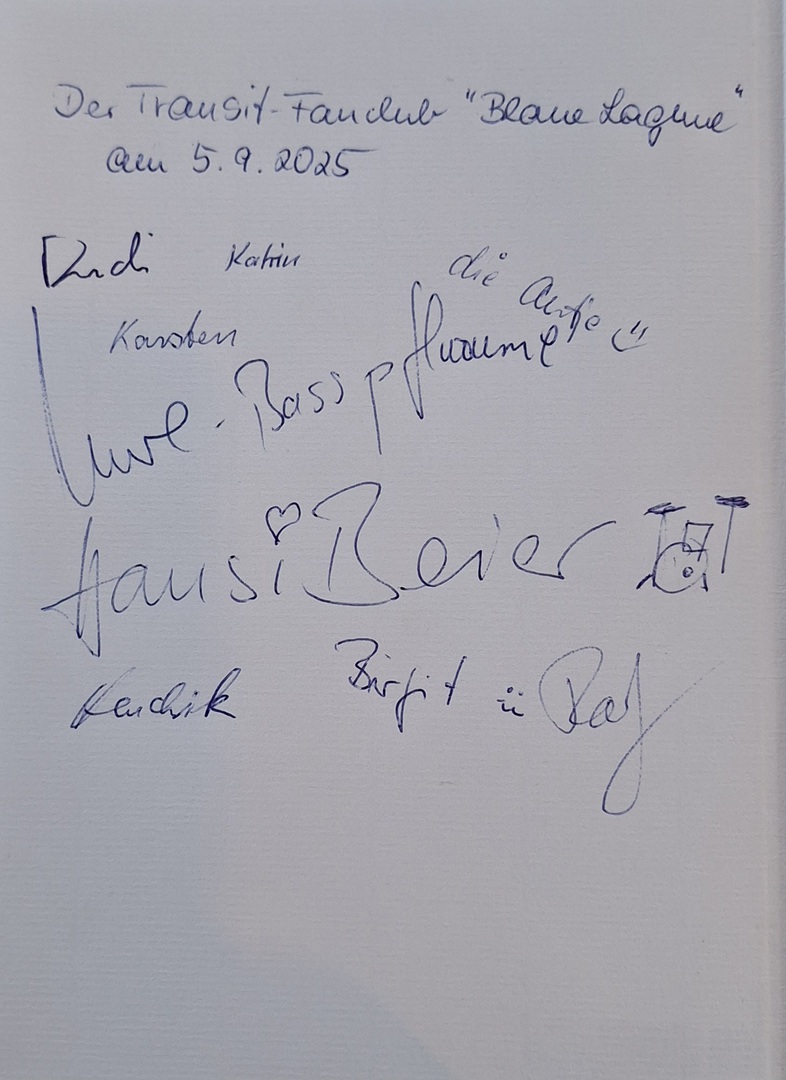 Der Transit-Fanclub "Blaue Lagune"
am 5.9.2025
Rudi Katrin die Antje
Karsten
Uwe - Basspflaume
Hansi Beier
Hendrik Birgit u Ralf